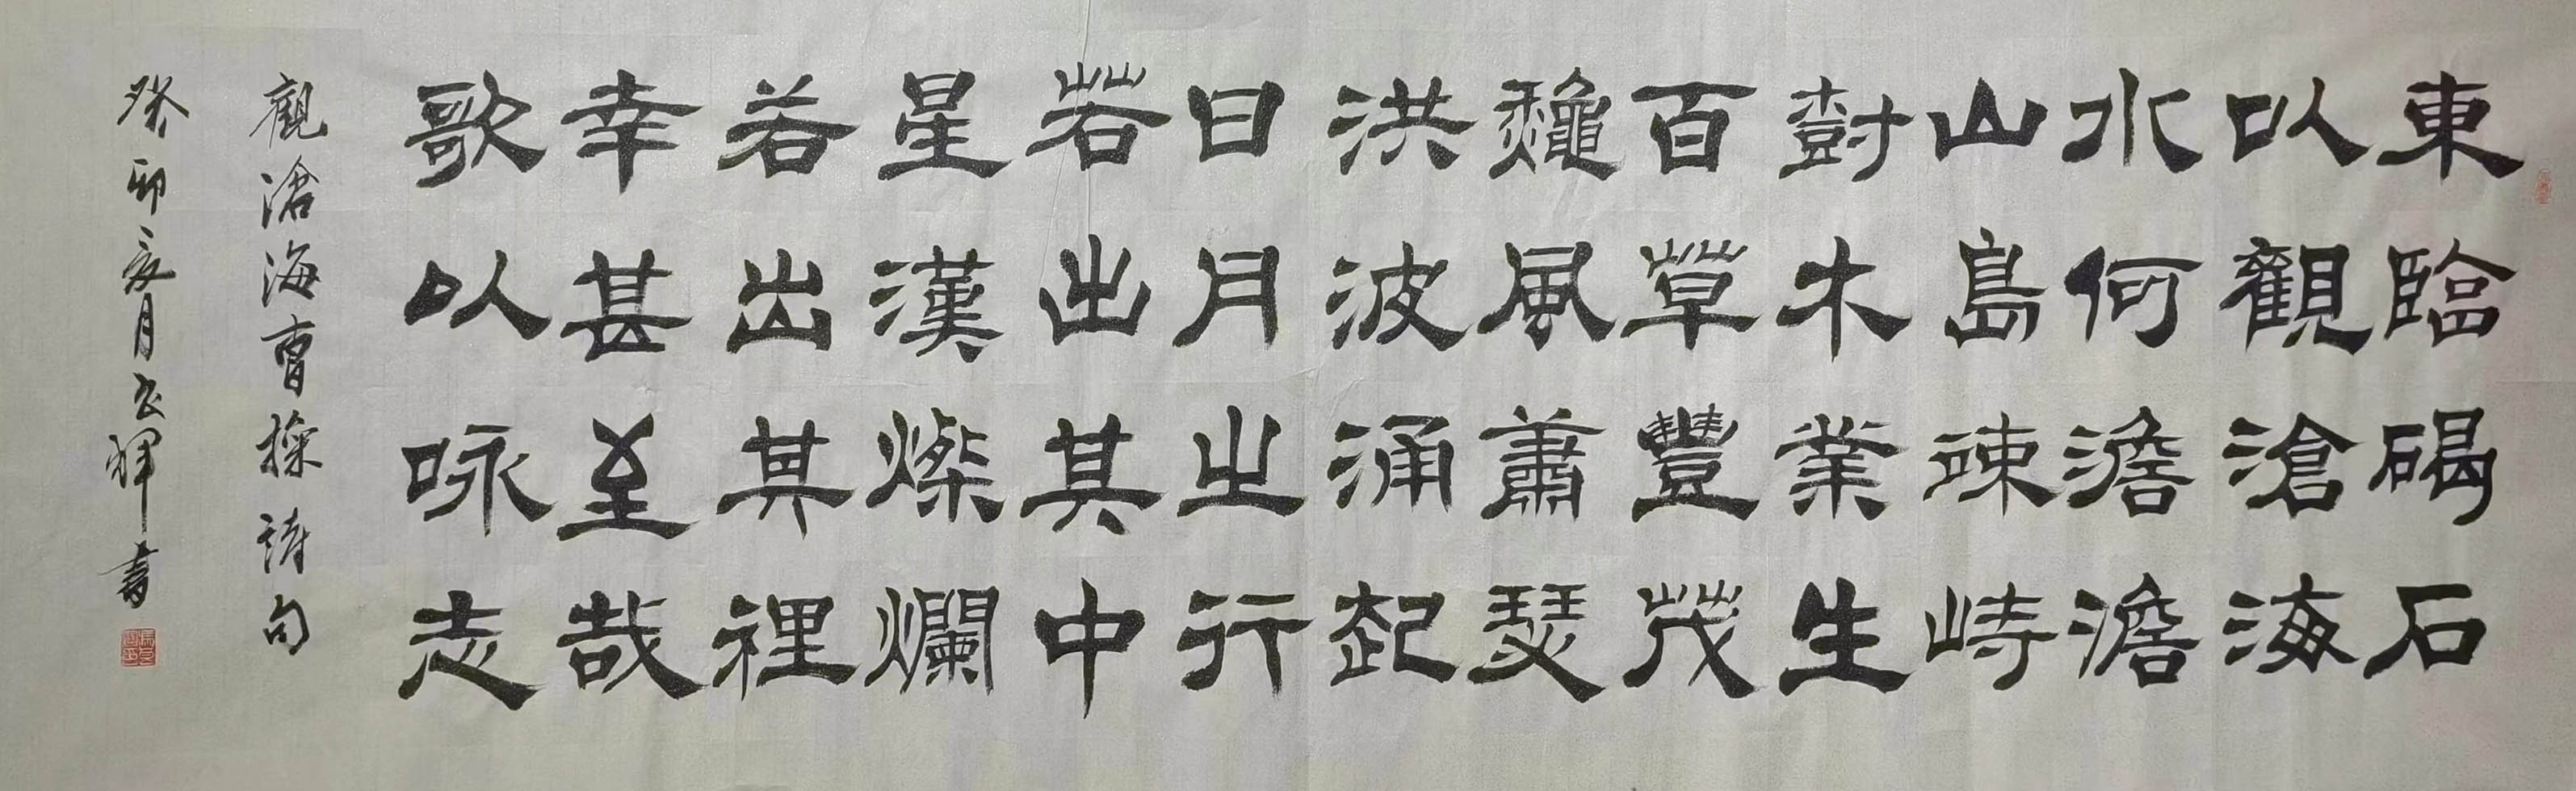 東臨碣石
以觀滄海
水何澹澹
山島竦峙
樹木業生
百草豐茂
龝風蕭瑟
洪波涌起
日月之行
若出其中
星漢燦爛
若出其裡
幸甚至哉
歌以咏志
觀滄海曹操詩句
癸卯亥月公祥書